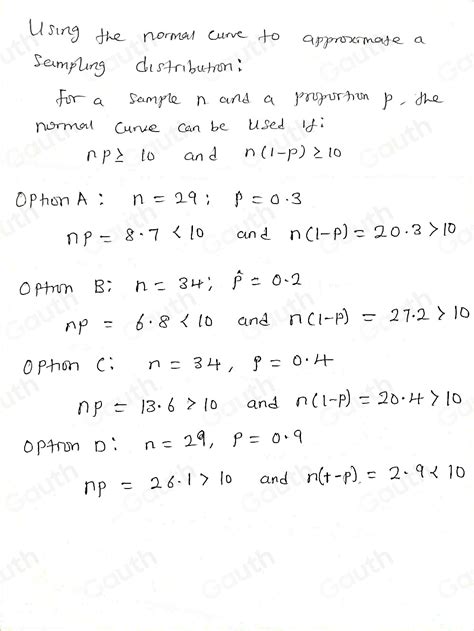 Using the normal curve to approximate a
sampling distribution:
for a sample n and a proportion p, the
normal curve can be used if:
np ≥ 10 and n(1-p) ≥ 10
Option A: n = 29; p̂ = 0.3
np = 8.7 < 10 and n(1-p) = 20.3 > 10
Option B: n = 34; p̂ = 0.2
np = 6.8 < 10 and n(1-p) = 27.2 > 10
Option C: n = 34, p = 0.4
np = 13.6 > 10 and n(1-p) = 20.4 > 10
Option D: n = 29, p = 0.9
np = 26.1 > 10 and n(1-p) = 2.9 < 10
Gauth